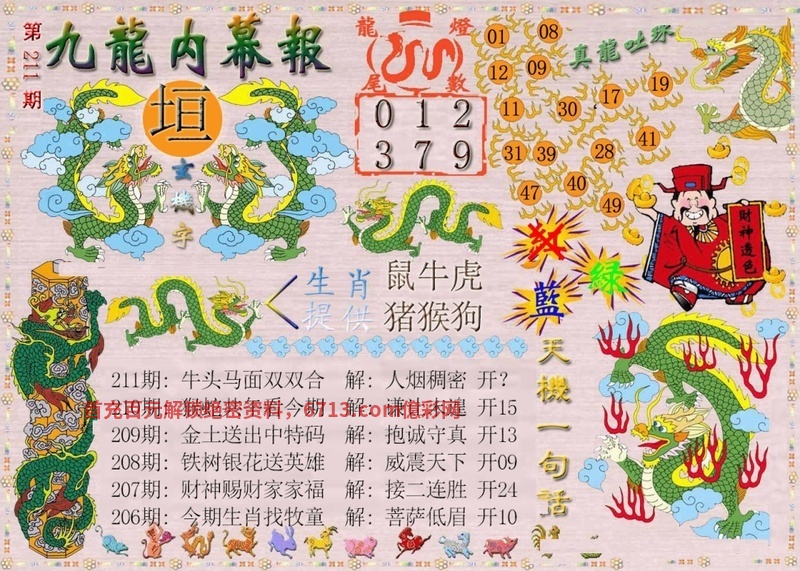 第211期
九龍内幕報
垣
玄機字
龍燈
尾數
0 1 2
3 7 9
真龍吐珠
01 08
12 09
11 30 17 19
31 39 28 41
47 40 49
財神透色
红
綠
藍
生肖
提供
鼠牛虎
猪猴狗
天機一句話
211期: 牛头马面双双合 解: 人烟稠密 开?
开15
首充四元解锁绝密资料, 6713.com信彩网
209期: 金土送出中特码 解: 抱诚守真 开13
208期: 铁树银花送英雄 解: 威震天下 开09
207期: 财神赐财家家福 解: 接二连胜 开24
206期: 今期生肖找牧童 解: 菩萨低眉 开10